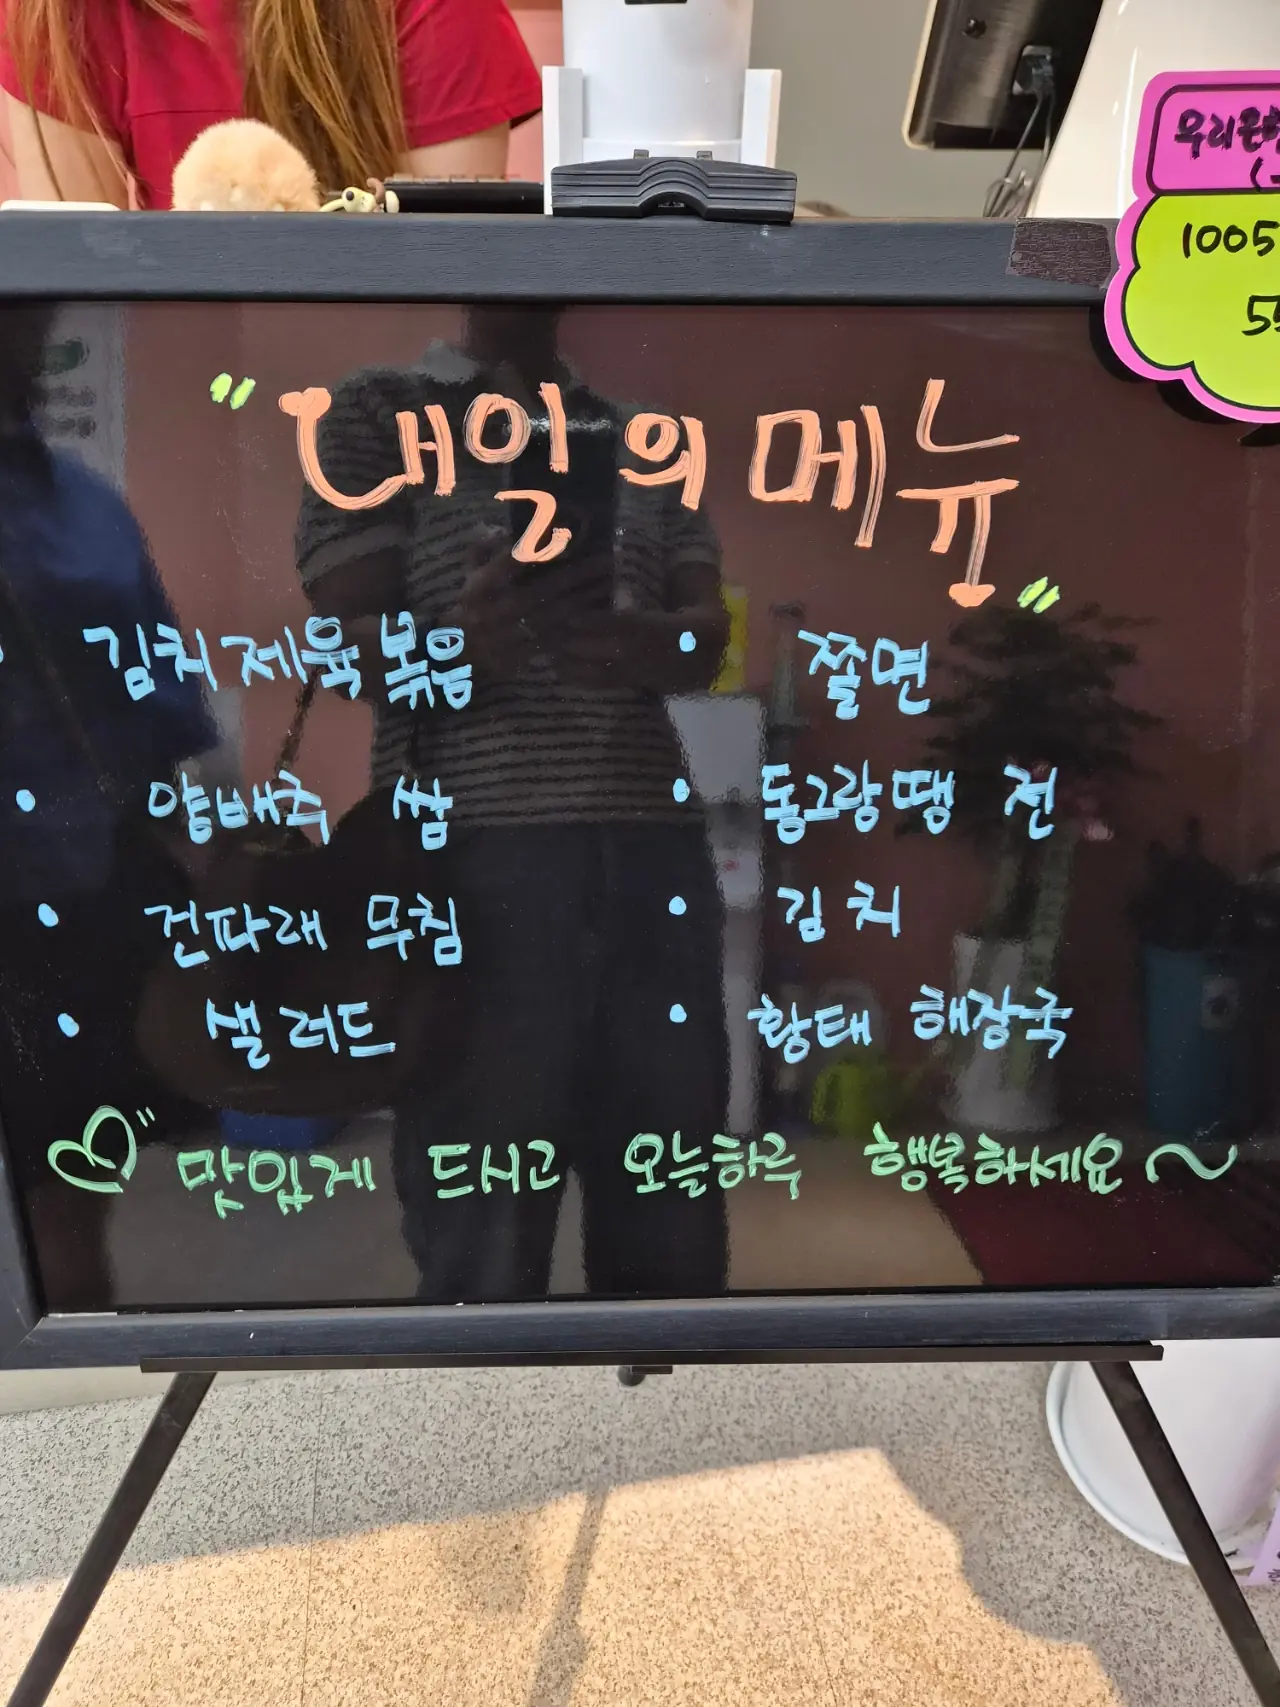 우리은행
1005
55
"내일의 메뉴"
• 김치제육볶음
• 쫄면
• 양배추 쌈
• 동그랑땡 전
• 건파래 무침
• 김치
• 샐러드
• 황태 해장국
♡" 맛있게 드시고 오늘하루 행복하세요~